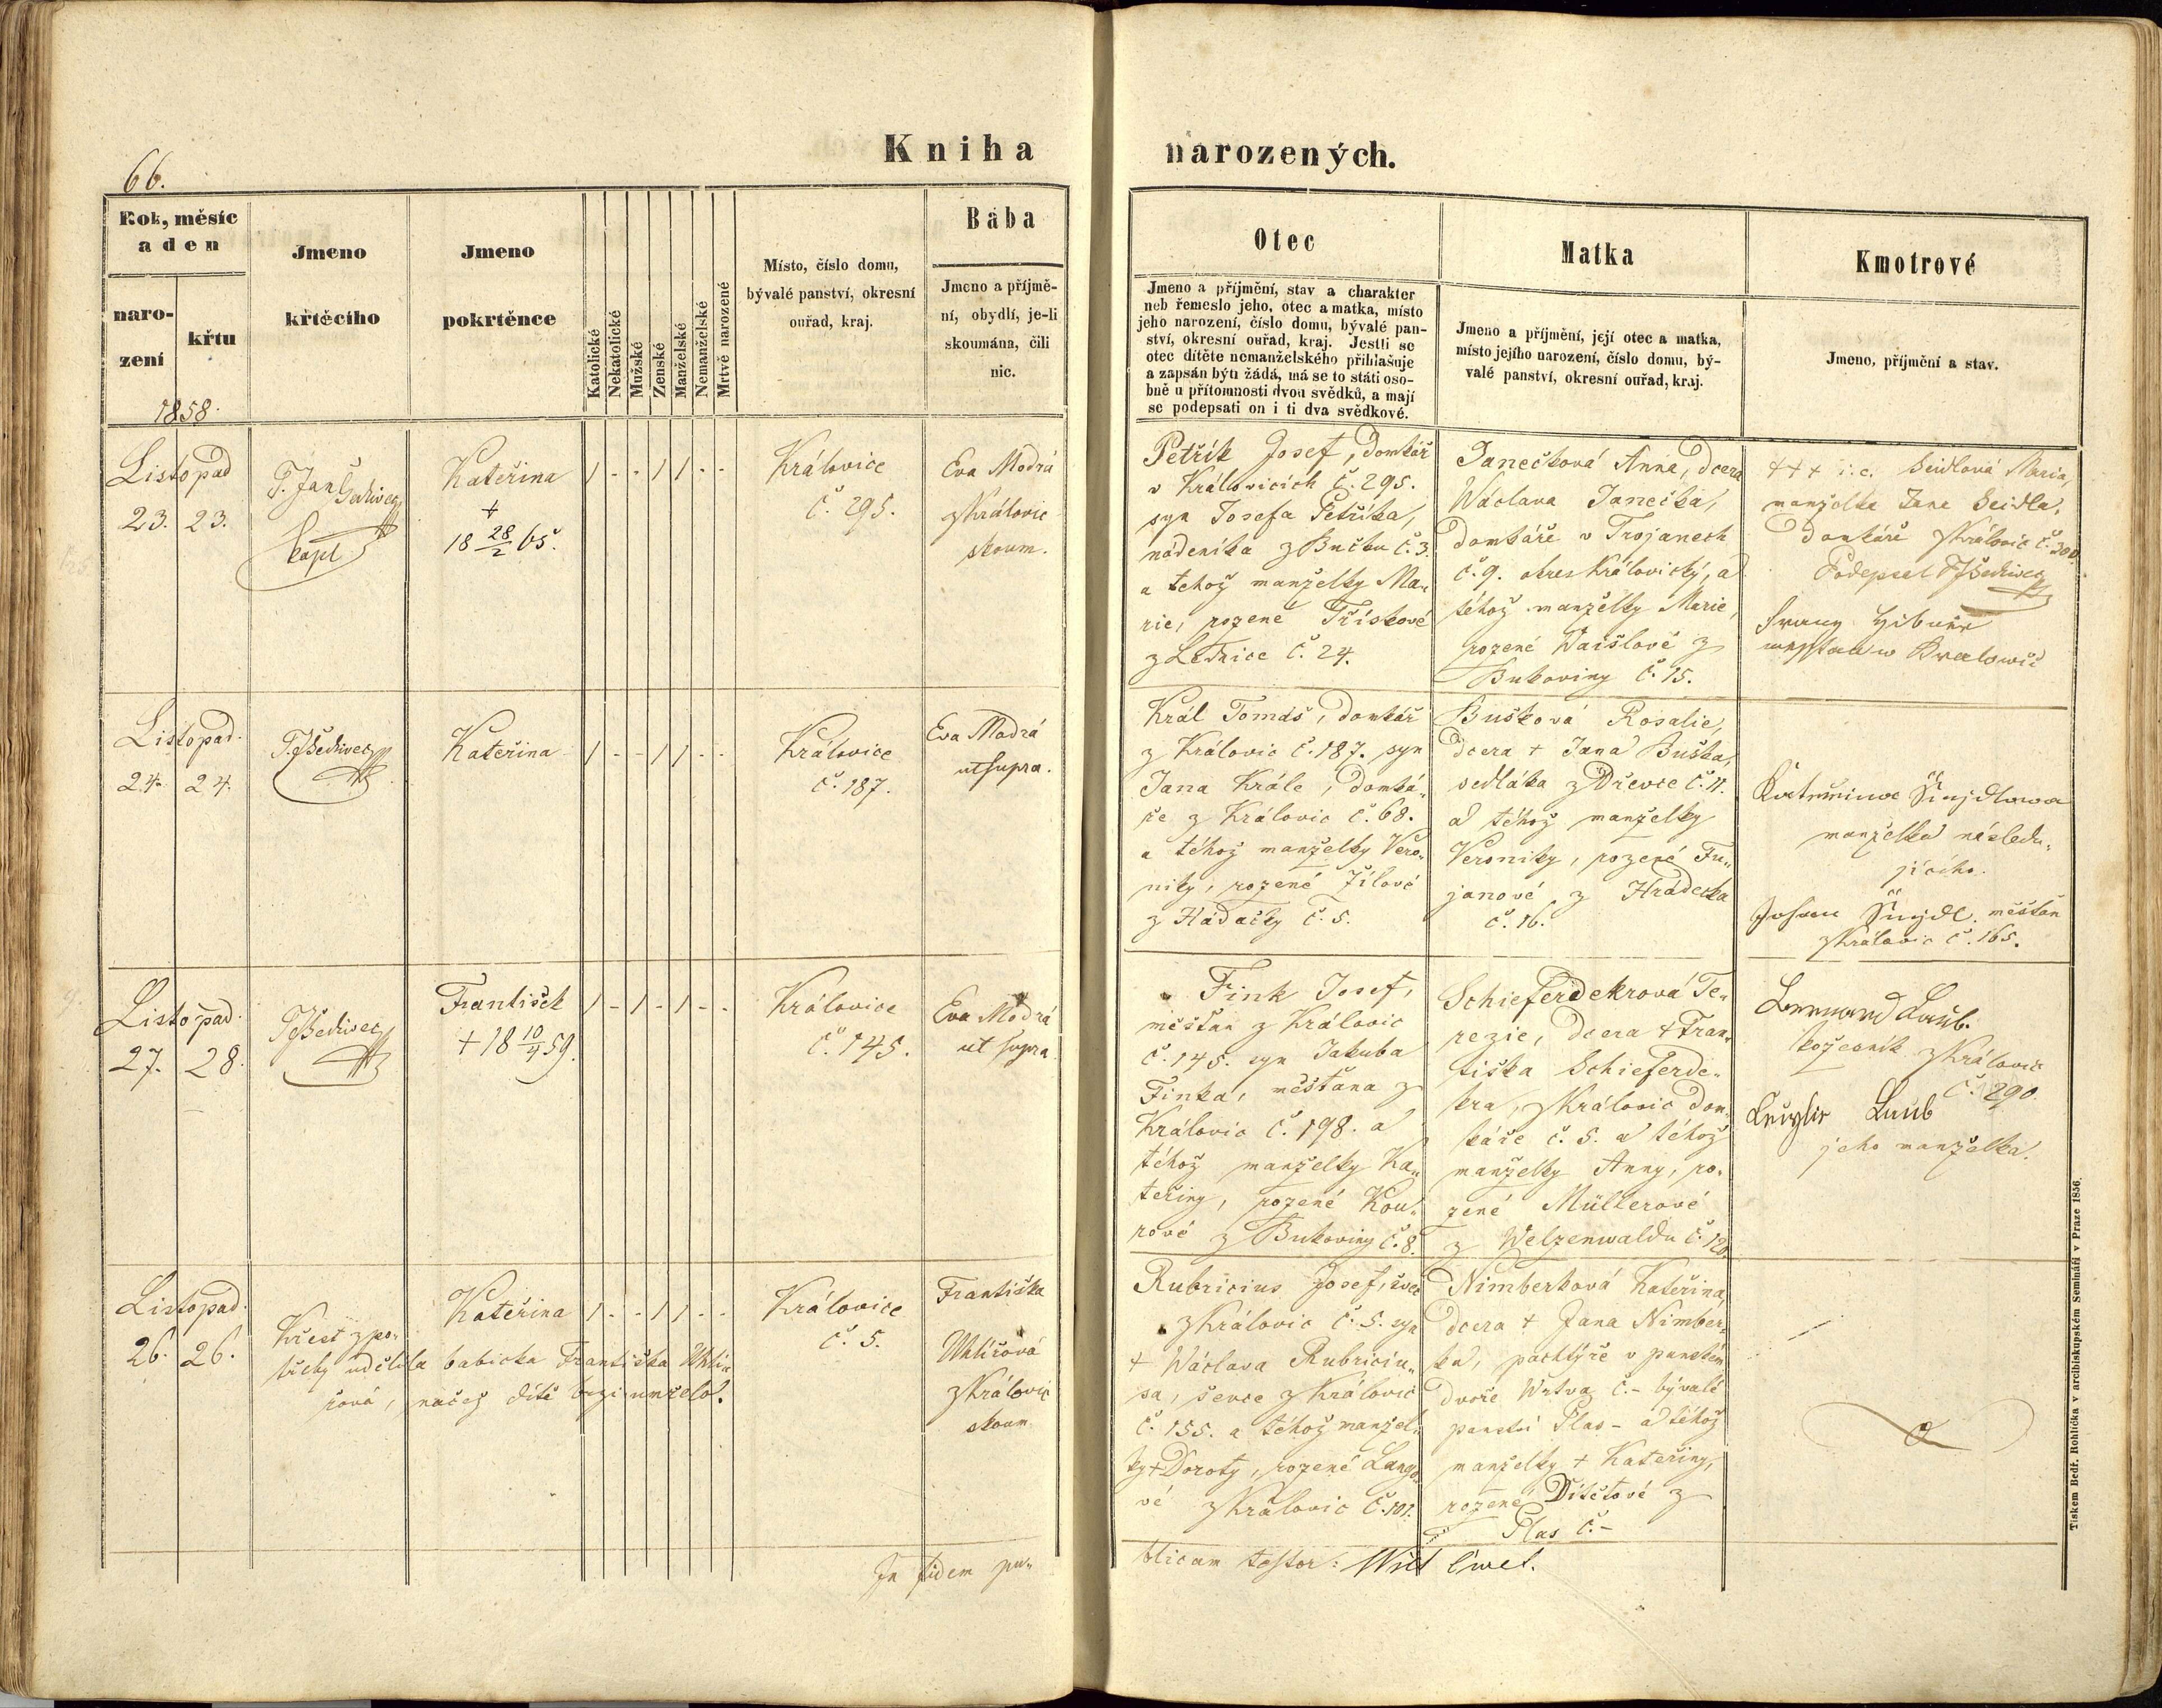 66.
Kniha narozených.
Rok, měsíc
a den
naro-
zení
křtu
1858.
Jmeno
křtěcího
Jmeno
pokrtěnce
Katolické
Nekatolické
Mužské
Ženské
Manželské
Nemanželské
Mrtvě narozené
Místo, číslo domu,
bývalé panství, okresní
ouřad, kraj.
Bába
Jmeno a příjmě-
ní, obydlí, je-li
skoumána, čili
nic.
Otec
Jmeno a příjmění, stav a charakter
neb řemeslo jeho, otec a matka, místo
jeho narození, číslo domu, bývalé pan-
ství, okresní ouřad, kraj. Jestli se
otec dítěte nemanželského přihlašuje
a zapsán býti žádá, má se to státi oso-
bně u přítomnosti dvou svědků, a mají
se podepsati on i ti dva svědkové.
Matka
Jmeno a příjmění, její otec a matka,
místo jejího narození, číslo domu, bý-
valé panství, okresní ouřad, kraj.
Kmotrové
Jmeno, příjmění a stav.
Listopad
23. 23.
P. Jan Šediwec
kapl
Kateřina
+
18 28/2 65.
/ - - / / - -
Královice
č. 295.
Eva Modrá
z Královic
skoum.
Petřík Josef, domkář
v Královicích č. 295.
syn Josefa Petříka,
nádeníka z Bučku č. 3.
a tehož manželky Ma-
rie, rozené Třískové
z Lednice č. 24.
Janečková Anna, dcera
Wáclava Janečka,
domkáře v Trojanech
č. 9. okres Královický, a
téhož manželky Marie,
rozené Waišlové z
Bukoviny č. 15.
+++ i. e. Seidlová Maria,
manželka Jana Seidla,
domkáře z Královic č. 300.
Podepsal P. J. Šediwec
Listopad.
24. 24.
P. J. Šediwec
Kateřina
/ - - / / - -
Královice
č. 187.
Eva Modrá
ut supra.
Král Tomáš, domkář
z Královic č. 187. syn
Jana Krále, domká-
ře z Královic č. 68.
a téhož manželky Vero-
niky, rozené Jílové
z Hadačky č. 5.
Bušková Rosalie,
dcera + Jana Buška,
sedláka z Dřevce č. 11.
a téhož manželky
Veroniky, rozené Fu-
janové z Hrádecka
č. 16.
manželka následu-
jícího.
měšťan
z Královic č. 165.
Listopad.
27. 28.
P. J. Šediwec
František
+ 18 10/4 59.
/ - / - / - -
Královice
č. 145.
Eva Modrá
ut supra
Fink Josef,
měšťan z Královic
č. 145. syn Jakuba
Finka, měšťana z
Královic č. 198. a
téhož manželky Ka-
teřiny, rozené Kou-
rové z Bukoviny č. 8.
Schieferdekrová Te-
rezie, dcera + Fran-
tiška Schieferde-
kra, z Královic dom-
káře č. 5. a téhož
manželky Anny, ro-
zené Müllerové
z Welzenwaldu č. 120.
Bernard Laub.
koželuh z Královic
č. 290.
Laub
jeho manželka.
Listopad.
26. 26.
Křest z po-
třeby udělila babička Františka Uhlí-
řová, načež dítě brzi umřelo.
Kateřina
/ - - / / - -
Královice
č. 5.
Františka
Uhlířová
z Královic
skoum.
Rubricius Josef, švec
z Královic č. 5. syn
+ Wáclava Rubriciu-
sa, ševce z Královic
č. 155. a téhož manžel-
ky + Doroty, rozené Lango-
vé z Královic č. 101.
Nimberková Kateřina,
dcera + Jana Nimber-
ka, pachtýře v panském
dvoře Wrtva č.- bývalé
panství Plas - a téhož
manželky + Kateřiny,
rozené Dítětové z
Plas č.-
In fidem pu-
blicam testor:
Tiskem Bedř. Rohlíčka v arcibiskupském Semináři v Praze 1856.